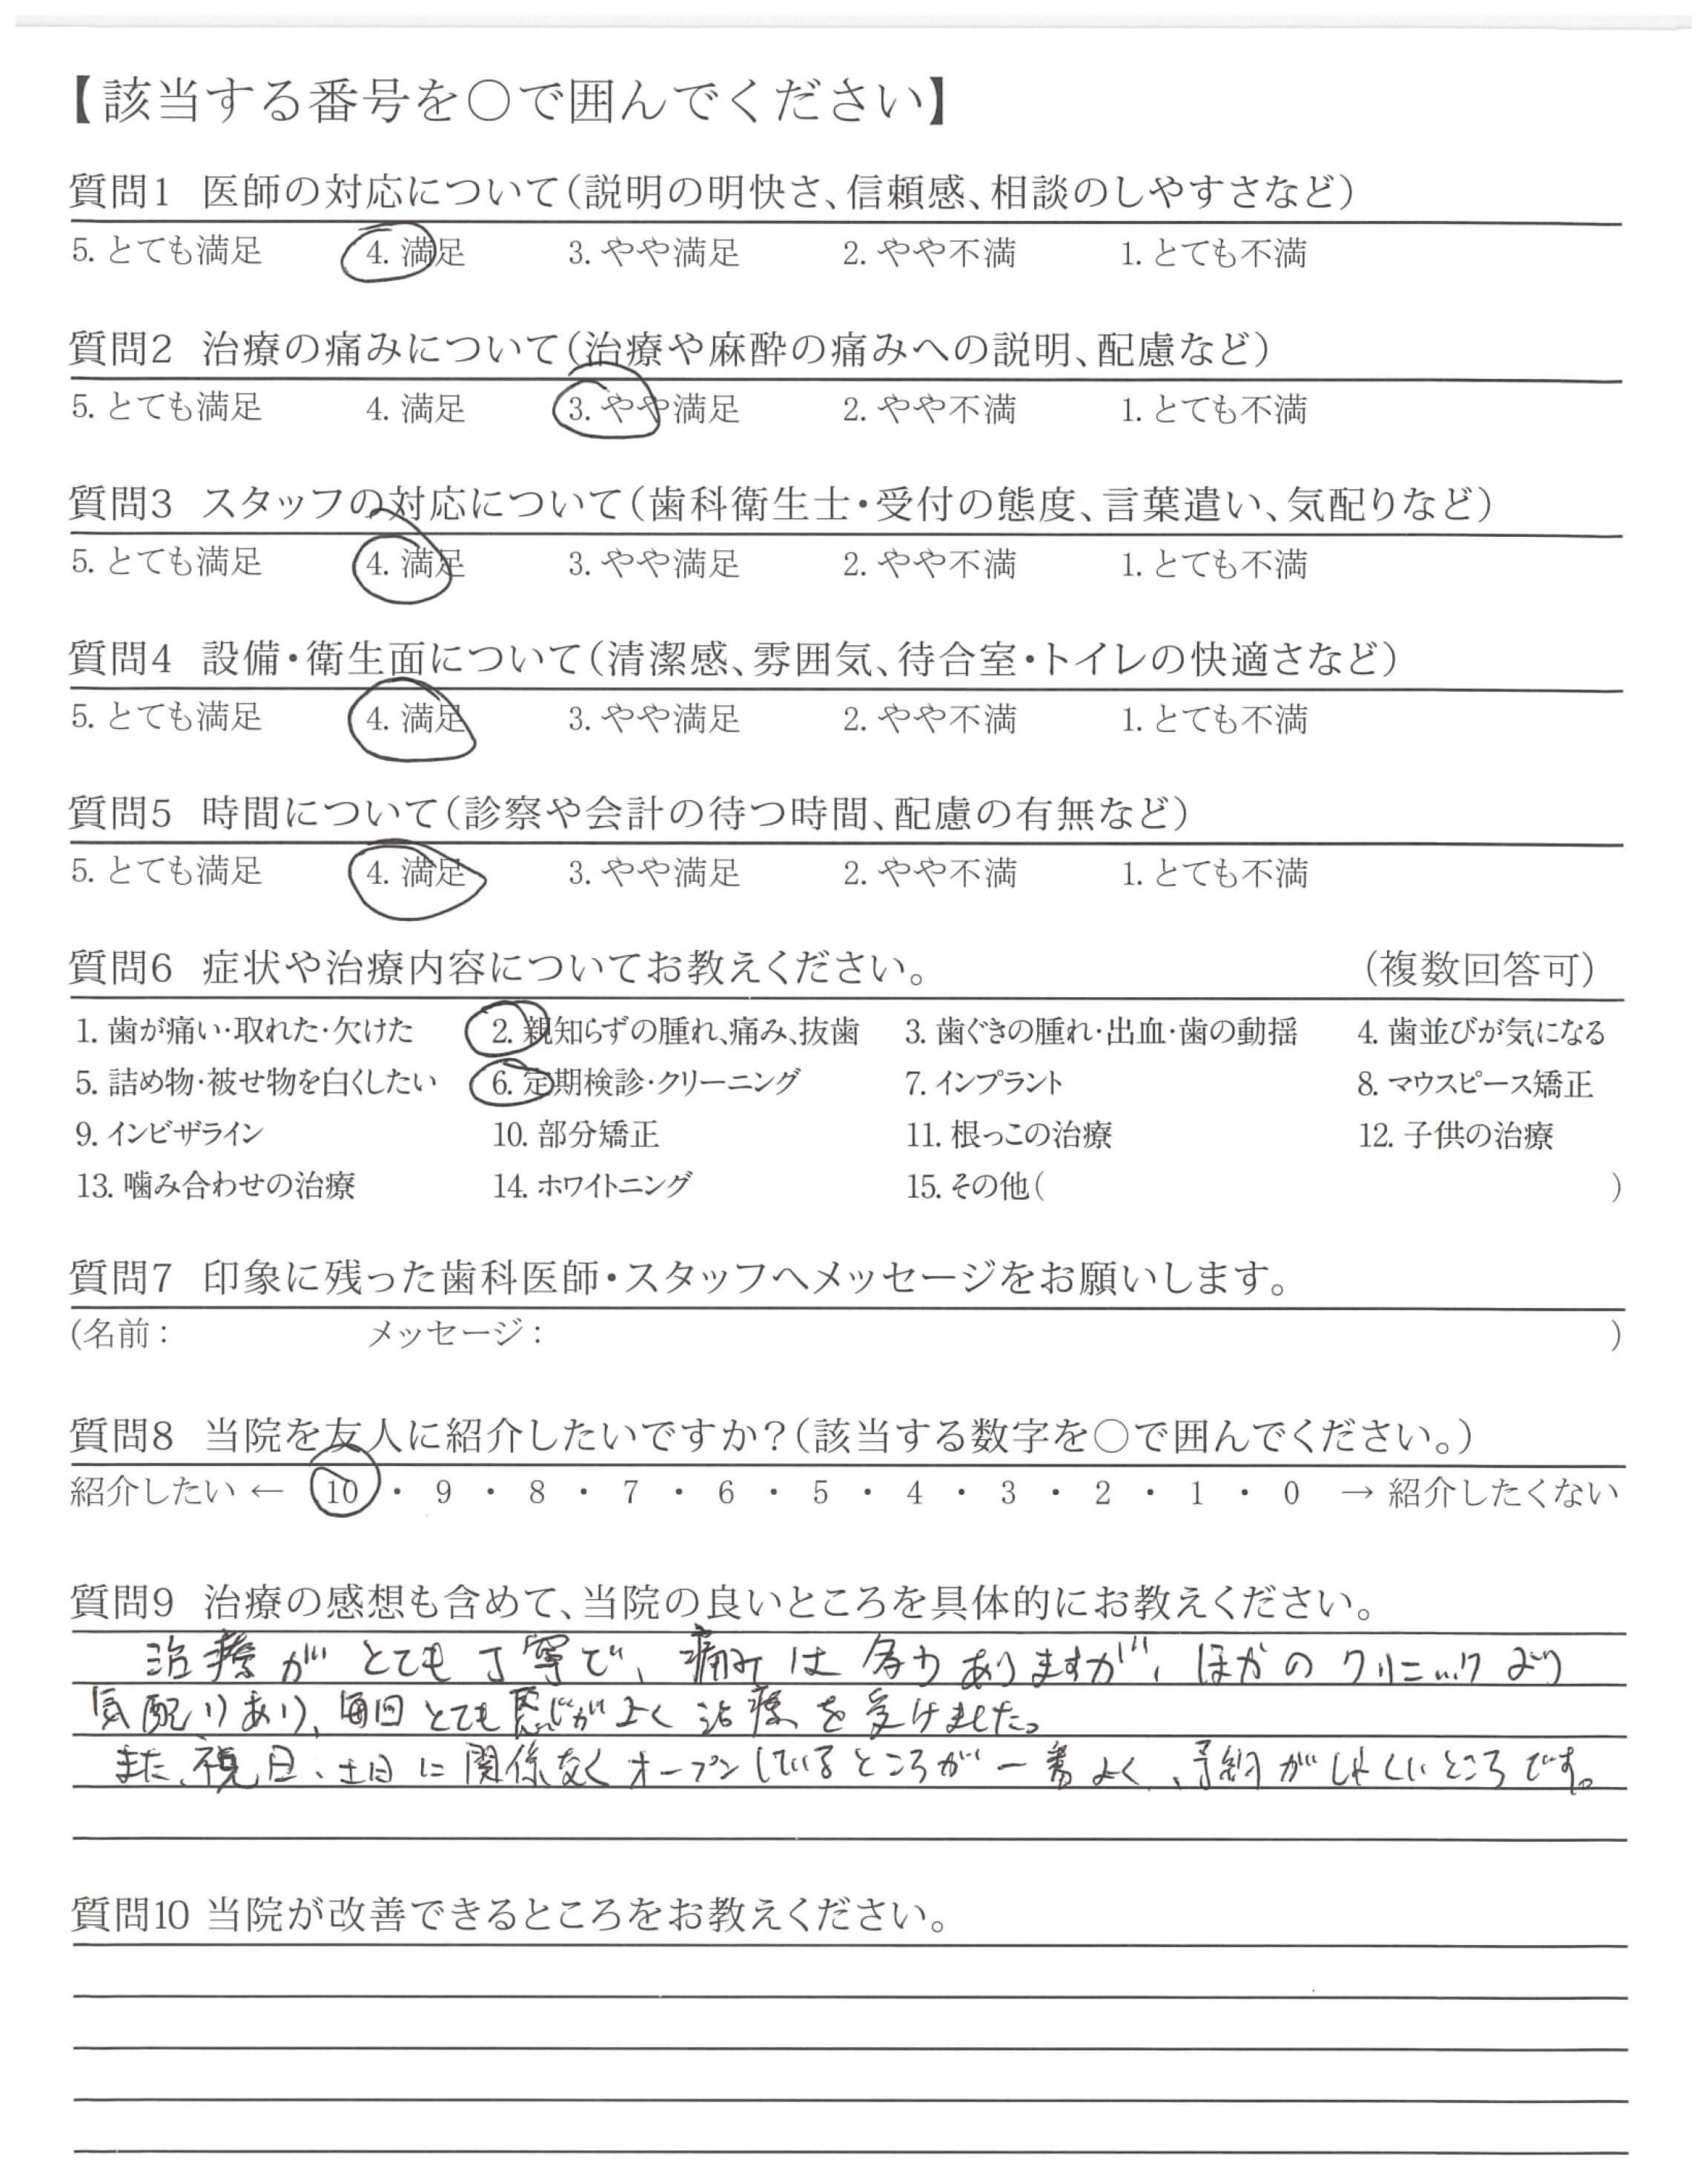 【該当する番号を○で囲んでください】
質問1 医師の対応について(説明の明快さ、信頼感、相談のしやすさなど)
5. とても満足 4. 満足 3. やや満足 2. やや不満 1. とても不満
質問2 治療の痛みについて(治療や麻酔の痛みへの説明、配慮など)
5. とても満足 4. 満足 3. やや満足 2. やや不満 1. とても不満
質問3 スタッフの対応について(歯科衛生士・受付の態度、言葉遣い、気配りなど)
5. とても満足 4. 満足 3. やや満足 2. やや不満 1. とても不満
質問4 設備・衛生面について(清潔感、雰囲気、待合室・トイレの快適さなど)
5. とても満足 4. 満足 3. やや満足 2. やや不満 1. とても不満
質問5 時間について(診察や会計の待つ時間、配慮の有無など)
5. とても満足 4. 満足 3. やや満足 2. やや不満 1. とても不満
質問6 症状や治療内容についてお教えください。 (複数回答可)
1. 歯が痛い・取れた・欠けた 2. 親知らずの腫れ、痛み、抜歯 3. 歯ぐきの腫れ・出血・歯の動揺 4. 歯並びが気になる
5. 詰め物・被せ物を白くしたい 6. 定期検診・クリーニング 7. インプラント 8. マウスピース矯正
9. インビザライン 10. 部分矯正 11. 根っこの治療 12. 子供の治療
13. 噛み合わせの治療 14. ホワイトニング 15. その他( )
質問7 印象に残った歯科医師・スタッフへメッセージをお願いします。
(名前: メッセージ: )
質問8 当院を友人に紹介したいですか?(該当する数字を○で囲んでください。)
紹介したい ← 10 ・ 9 ・ 8 ・ 7 ・ 6 ・ 5 ・ 4 ・ 3 ・ 2 ・ 1 ・ 0 → 紹介したくない
質問9 治療の感想も含めて、当院の良いところを具体的にお教えください。
治療がとても丁寧で、痛みは多少ありますが、ほかのクリニックより
気配りあり、毎回とても感じがよく治療を受けました。
また、祝日、土日に関係なくオープンしているところが一番よく、予約がしやくしいところです。
質問10 当院が改善できるところをお教えください。